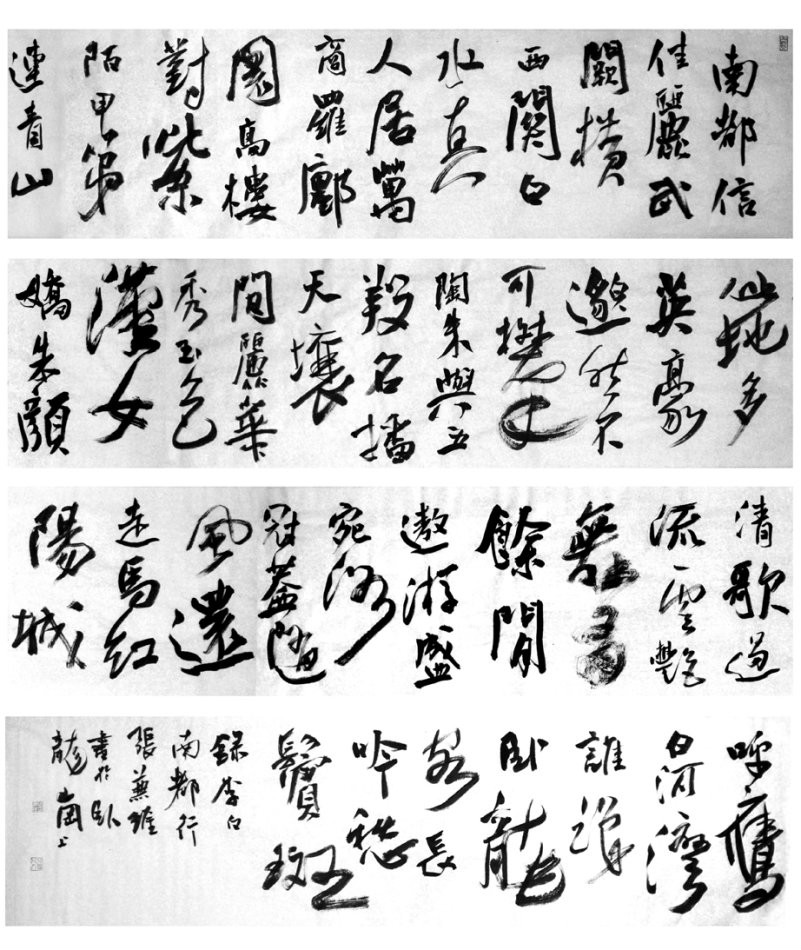 南都信
佳麗武
闕横
西關白
水真
人居萬
商羅鄽
闤高樓
對紫
陌甲第
連青山
此地多
英豪
邈然不
可攀
陶朱與五
羖名播
天壤
間麗華
秀玉色
漢女
嬌朱顏
清歌遏
流雲艷
舞有
餘閒
遨游盛
宛洛
冠蓋隨
風還
走馬紅
陽城
呼鷹
白河灣
誰識
卧龍
客長
吟愁
鬢斑
錄李白
南都行
張兼維
書於卧
龍崗上